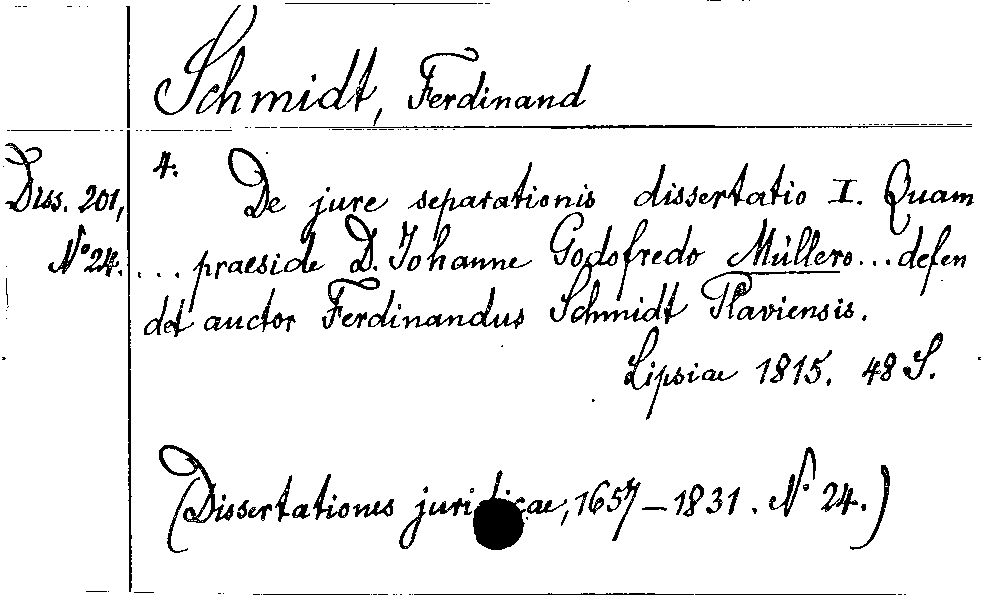 Schmidt, Ferdinand
Diss. 201,
No 24.
4.
De jure separationis dissertatio I. Quam
... praeside D. Johanne Godofredo Müllero... defen
det auctor Ferdinandus Schmidt Plaviensis.
Lipsiae 1815. 48 S.
(Dissertationes juridicae, 1657-1831. No 24.)